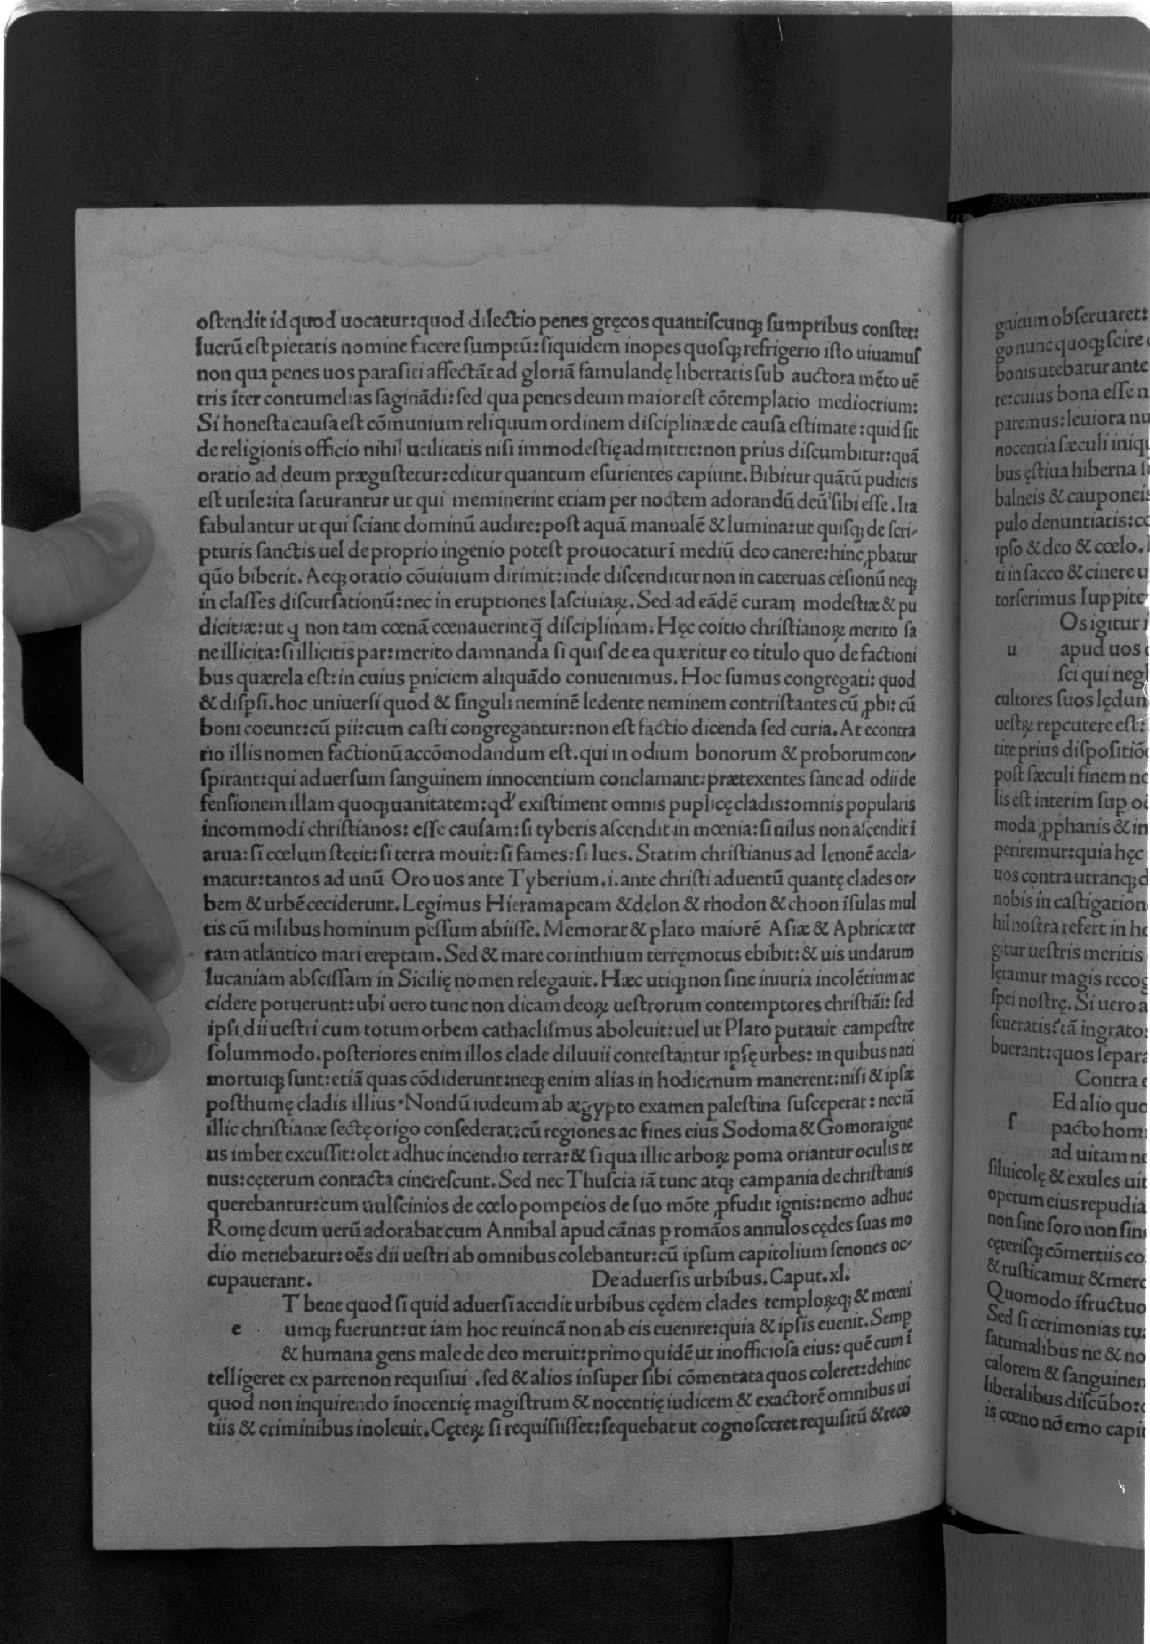 ostendit id quod uocatur:quod dilectio penes gręcos quantiscunqꝫ sumptibus constet:
lucrū est pietatis nomine facere sumptū:siquidem inopes quosqꝫ refrigerio isto iuuamus
non qua penes uos parasiti affectāt ad gloriā famulandę libertatis sub auctora mēto uē
tris īter contumelias saginādi:sed qua penes deum maior est cōtemplatio mediocrium:
Si honesta causa est cōmunium reliquum ordinem disciplinæ de causa estimate:quid sit
de religionis officio nihil utilitatis nisi immodestię admittit:non prius discumbitur:quā
oratio ad deum prægustetur:editur quantum esurientes capiunt. Bibitur quātū pudicis
est utile:ita saturantur ut qui meminerint etiam per noctem adorandū deū sibi esse. Ita
fabulantur ut qui sciant dominū audire:post aquā manualē & lumina:ut quisqꝫ de scri-
pturis sanctis uel de proprio ingenio potest prouocatur ī mediū deo canere:hinc ꝓbatur
quo biberit. Aeqꝫ oratio cōuiuium dirimit:inde discenditur non in cateruas cesionū neqꝫ
in classes discursationū:nec in eruptiones lasciuiaꝝ. Sed ad eādē curam modestiæ & pu
dicitiæ:ut q non tam cœnā cœnauerint q̄ disciplinam. Hęc coitio christianoꝝ merito sa
ne illicita:si illicitis par:merito damnanda si quis de ea quæritur eo titulo quo de factioni
bus quærela est:in cuius ꝑniciem aliquādo conuenimus. Hoc sumus congregati: quod
& dispsi.hoc uniuersi quod & singuli neminē ledente neminem contristantes cū ꝓbi: cū
boni coeunt:cū pii:cum casti congregantur:non est factio dicenda sed curia. At econtra
rio illis nomen factionū accōmodandum est.qui in odium bonorum & proborum con-
spirant:qui aduersum sanguinem innocentium conclamant:prætexentes sane ad odii de
fensionem illam quoqꝫ uanitatem:qd' existiment omnis puplicę cladis:omnis popularis
incommodi christianos: esse causam:si tyberis ascendit in mœnia:si nilus non ascendit ī
arua:si cœlum stetit:si terra mouit:si fames:si lues. Statim christianus ad lenonē accla-
matur:tantos ad unū Oro uos ante Tyberium.i.ante christi aduentū quantę clades or-
bem & urbē ceciderunt. Legimus Hieramapeam & dęlon & rhodon & choon īsulas mul
tis cū milibus hominum pessum abiisse. Memorat & plato maiorē Asiæ & Aphricæ ter
ram atlantico mari ereptam. Sed & mare corinthium terręmotus ebibit: & uis undarum
lucaniam abscissam in Sicilię nomen relegauit. Hæc utiqꝫ non sine iniuria incolētium ac
cidere potuerunt: ubi uero tunc non dicam deoꝝ uestrorum contemptores christiāi: sed
ipsi dii uestri cum totum orbem cathaclismus aboleuit:uel ut Plato putauit campestre
solummodo.posteriores enim illos clade diluuii contestantur ipsę urbes: in quibus nati
mortuiqꝫ sunt:etiā quas cōdiderunt:neqꝫ enim alias in hodiernum manerent:nisi & ipsæ
posthumę cladis illius. Nondū iudeum ab ægypto examen palestina susceperat: neciā
illic christianæ sectę origo consederat:cū regiones ac fines eius Sodoma & Gomora igne
us imber excussit:olet adhuc incendio terra:& si qua illic arboꝝ poma oriantur oculis te
nus:cęterum contacta cinerescunt. Sed nec Thuscia iā tunc atqꝫ campania de christianis
querebantur:cum uulscinios de cœlo pompeios de suo mōte ꝓfudit ignis:nemo adhuc
Romę deum uerū adorabat cum Annibal apud cānas p romāos annulos cędes suas mo
dio metiebatur:oēs dii uestri ab omnibus colebantur:cū ipsum capitolium senones oc-
cupauerant. De aduersis urbibus. Caput.xl.
T bene quod si quid aduersi accidit urbibus cędem clades temploꝝqꝫ & mœni
e umqꝫ fuerunt:ut iam hoc reuincā non ab eis euenire:quia & ipsis euenit. Semp
& humana gens male de deo meruit:primo quidē ut inofficiosa eius: quē cum ī
telligeret ex parte non requisiui .sed & alios insuper sibi cōmentata quos coleret:dehinc
quod non inquirendo īnocentię magistrum & nocentię iudicem & exactorē omnibus ui
tiis & criminibus inoleuit. Cęteꝝ si requisiisset:sequebat ut cognosceret requisitū & reco
gnitum obseruaret:
go nunc quoqꝫ scire
bonis utebatur ante
re:cuius bona esse n
paremus:leuiora nu
nocentia sæculi iniqu
bus ęstiua hiberna
balneis & cauponeis
pulo denuntiatis:
ipso & deo & cœlo.
ti in sacco & cinere u
torserimus Iuppite
Os igitur
u apud uos
sci qui negl
cultores suos lędun
uestꝝ repcutere est:
tire prius dispositiōe
post sæculi finem no
lis est interim sup
moda ꝓphanis & in
periremur:quia hęc
uos contra utranqꝫ d
nobis in castigation
hil nostra refert in ho
gitur uestris meritis
lętamur magis recog
spei nostrę. Si uero a
seueratis:tā ingratos
buerant:quos separa
Contra
Ed alio quo
s pacto hom
ad uitam ne
siluicolę & exules uit
operum eius repudia
non sine foro non sin
cęterisqꝫ cōmertiis co
& rusticamur & merc
Quomodo īfructuo
Sed si cerimonias tu
saturnalibus ne & no
calorem & sanguinem
liberalibus discūbo:
is cœno nō emo capi